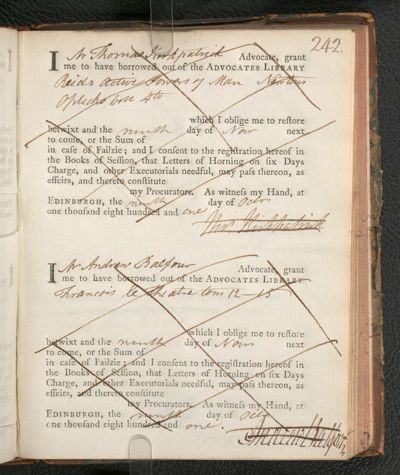 242.
I Mr Thomas Kirkpatrick Advocate, grant
me to have borrowed out of the ADVOCATES LIBRARY
Reids Active Powers of Man Newtons
Opticks 4to
which I oblige me to reſtore
betwixt and the ninth day of Novr next
to come, or the Sum of
in caſe of Failzie; and I conſent to the regiſtration hereof in
the Books of Seſſion, that Letters of Horning on ſix Days
Charge, and other Executorials needful, may paſs thereon, as
effeirs, and thereto conſtitute
my Procurators. As witneſs my Hand, at
EDINBURGH, the ninth day of Octr
one thouſand eight hundred and one
Thos Kirkpatrick
I Mr Andrew Balfour Advocate, grant
me to have borrowed out of the ADVOCATES LIBRARY
Francois le Theatre tom 12-15
which I oblige me to reſtore
betwixt and the ninth day of Novr next
to come, or the Sum of
in caſe of Failzie; and I conſent to the regiſtration hereof in
the Books of Seſſion, that Letters of Horning on ſix Days
Charge, and other Executorials needful, may paſs thereon, as
effeirs, and thereto conſtitute
my Procurators. As witneſs my Hand, at
EDINBURGH, the ninth day of Octr
one thouſand eight hundred and one.